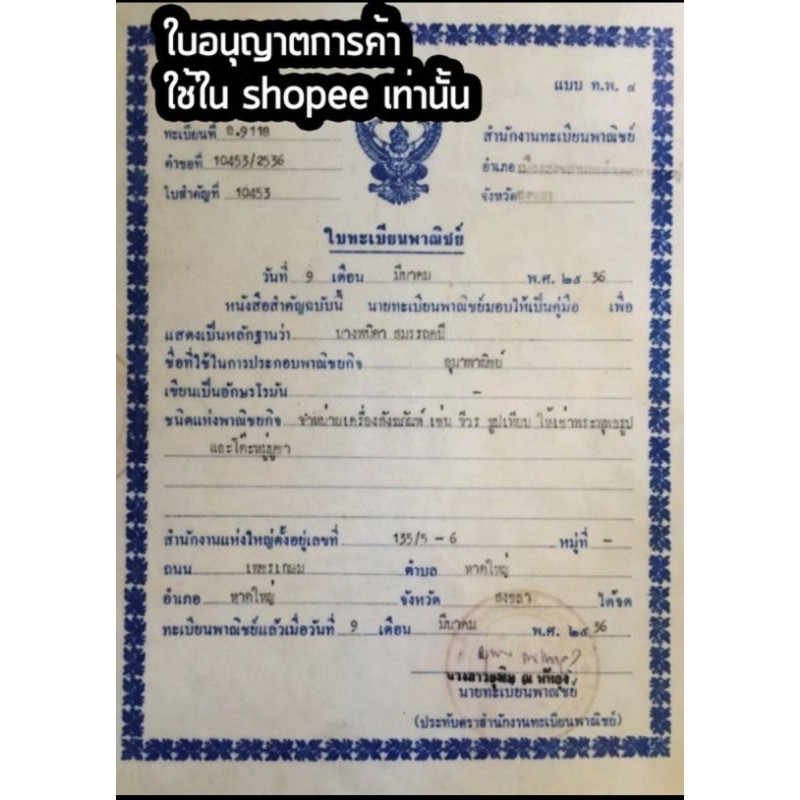 ใบอนุญาตการค้า
ใช้ใน shopee เท่านั้น
แบบ ท.พ. ๔
ทะเบียนที่ อ.9118
สำนักงานทะเบียนพาณิชย์
คำขอที่ 10453/2536
อำเภอ
ใบสำคัญที่ 10453
จังหวัดสงขลา
ใบทะเบียนพาณิชย์
วันที่ 9 เดือน มีนาคม พ.ศ. ๒๕ 36
หนังสือสำคัญฉบับนี้ นายทะเบียนพาณิชย์มอบให้เป็นคู่มือ เพื่อ
แสดงเป็นหลักฐานว่า
ชื่อที่ใช้ในการประกอบพาณิชยกิจ อุมาพาณิชย์
เขียนเป็นอักษรโรมัน -
ชนิดแห่งพาณิชยกิจ จำหน่ายเครื่องสังฆภัณฑ์ เช่น จีวร ธูปเทียน ให้เช่าพระพุทธรูป
และโต๊ะหมู่บูชา
สำนักงานแห่งใหญ่ตั้งอยู่เลขที่ 135/5 - 6 หมู่ที่ -
ถนน เพชรเกษม ตำบล หาดใหญ่
อำเภอ หาดใหญ่ จังหวัด สงขลา ได้จด
ทะเบียนพาณิชย์แล้วเมื่อวันที่ 9 เดือน มีนาคม พ.ศ. ๒๕ 36
นายทะเบียนพาณิชย์
(ประทับตราสำนักงานทะเบียนพาณิชย์)